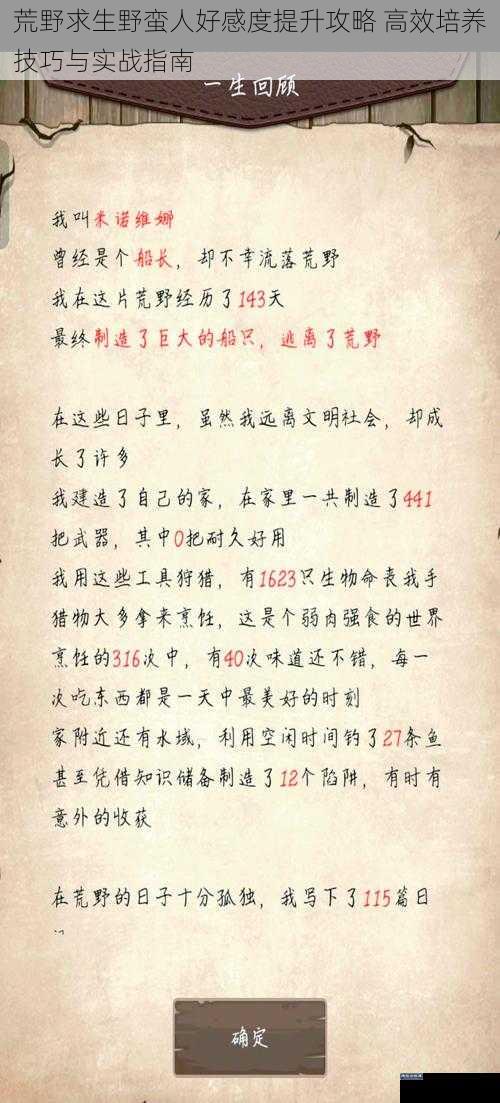 荒野求生野蛮人好感度提升攻略 高效培养
技巧与实战指南
一生回顾
我叫米诺维娜
曾经是个船长，却不幸流落荒野
我在这片荒野经历了143天
最终制造了巨大的船只，逃离了荒野
在这些日子里，虽然我远离文明社会，却成
长了许多
我建造了自己的家，在家里一共制造了441
把武器，其中0把耐久好用
我用这些工具狩猎，有1623只生物命丧我手
猎物大多拿来烹饪，这是个弱肉强食的世界
烹饪的316次中，有40次味道还不错，每一
次吃东西都是一天中最美好的时刻
家附近还有水域，利用空闲时间钓了27条鱼
甚至凭借知识储备制造了12个陷阱，有时有
意外的收获
在荒野的日子十分孤独，我写下了115篇日
确定